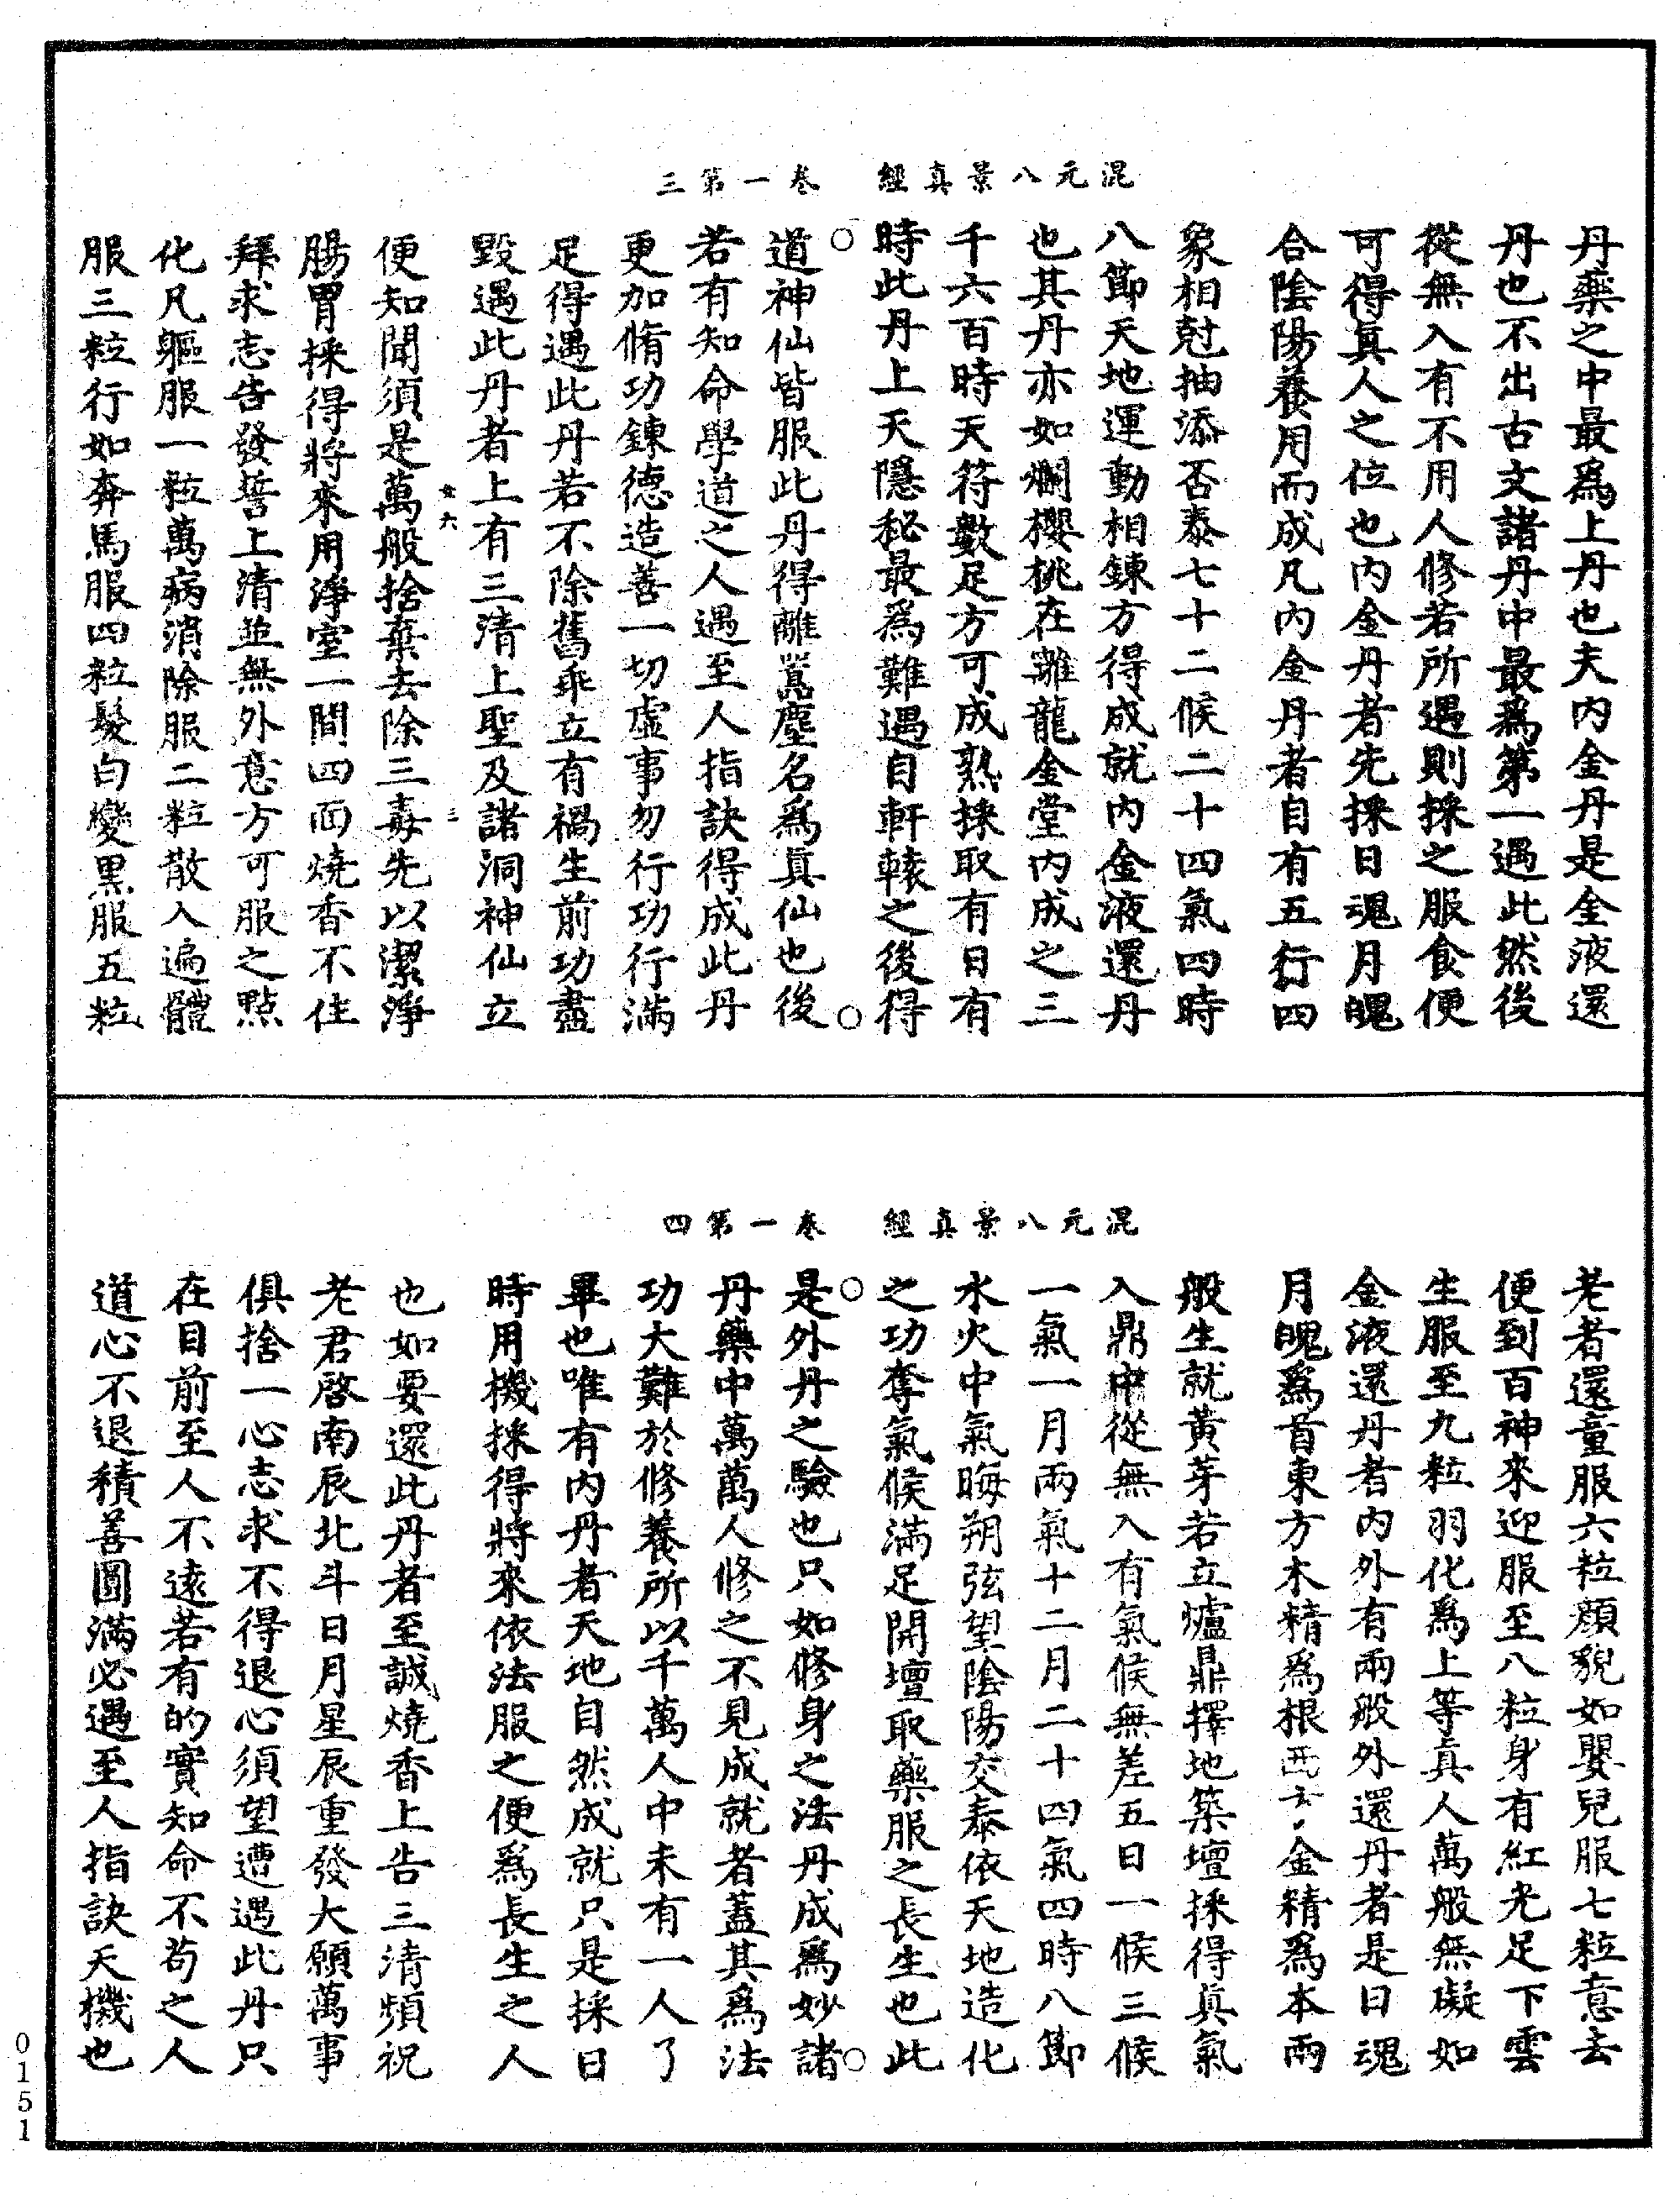 混元八景真經　卷一第三
丹藥之中最爲上丹也夫內金丹是金液還
丹也不出古文諸丹中最爲第一遇此然後
從無入有不用人修若所遇則採之服食便
可得真人之位也內金丹者先採日魂月魄
合陰陽養用而成凡內金丹者自有五行四
象相尅抽添否泰七十二候二十四氣四時
八節天地運動相鍊方得成就內金液還丹
也其丹亦如爛櫻桃在離龍金堂內成之三
千六百時天符數足方可成熟採取有日有
時此丹上天隱秘最爲難遇自軒轅之後得
道神仙皆服此丹得離囂塵名爲真仙也後
若有知命學道之人遇至人指訣得成此丹
更加脩功鍊德造善一切虛事勿行功行滿
足得遇此丹若不除舊乖立有禍生前功盡
毀遇此丹者上有三清上聖及諸洞神仙立
便知聞須是萬般捨棄去除三毒先以潔淨
腸胃採得將來用淨室一間四面燒香不住
拜求志告發誓上清並無外意方可服之點
化凡軀服一粒萬病消除服二粒散入遍體
服三粒行如奔馬服四粒髮白變黑服五粒
混元八景真經　卷一第四
老者還童服六粒顏貌如嬰兒服七粒意去
便到百神來迎服至八粒身有紅光足下雲
生服至九粒羽化爲上等真人萬般無礙如
金液還丹者內外有兩般外還丹者是日魂
月魄爲首東方木精爲根西方金精爲本兩
般生就黃芽若立爐鼎擇地築壇採得真氣
入鼎中從無入有氣候無差五日一候三候
一氣一月兩氣十二月二十四氣四時八節
水火中氣晦朔弦望陰陽交泰依天地造化
之功奪氣候滿足開壇取藥服之長生也此
是外丹之驗也只如修身之法丹成爲妙諸
丹藥中萬萬人修之不見成就者蓋其爲法
功大難於修養所以千萬人中未有一人了
畢也唯有內丹者天地自然成就只是採日
時用機採得將來依法服之便爲長生之人
也如要還此丹者至誠燒香上告三清頻祝
老君啓南辰北斗日月星辰重發大願萬事
俱捨一心志求不得退心須望遭遇此丹只
在目前至人不遠若有的實知命不苟之人
道心不退積善圓滿必遇至人指訣天機也
0151